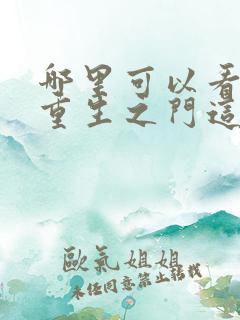 哪里可以看
重生之門這
歐氣姐姐
未任同意禁止轉載